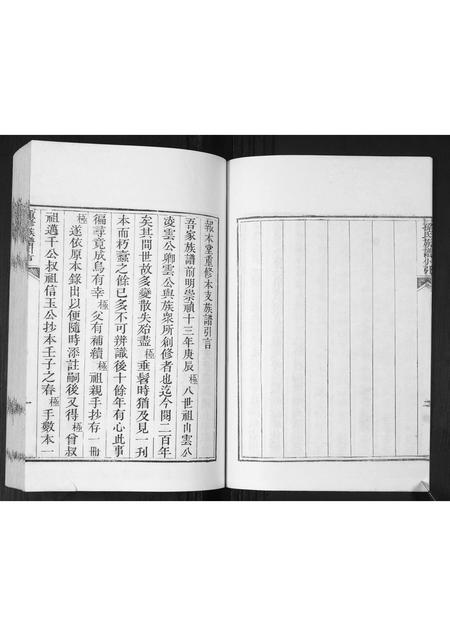 孫氏族譜小引
報本堂重修本支族譜引言
吾家族譜前明崇禎十三年庚辰極八世祖冉雲公
凌雲公卿雲公與族衆所創修者也迄今閱二百年
矣其間世故多變散失殆盡極垂髫時猶及見一刊
本而朽蠹之餘已多不可辨識後十餘年有心此事
徧尋竟成烏有幸極父有補續極祖親手抄存一冊
極遂依原本錄出以便隨時添註嗣後又得極曾叔
祖邁千公叔祖信玉公抄本壬子之春極手數本一
族譜引言